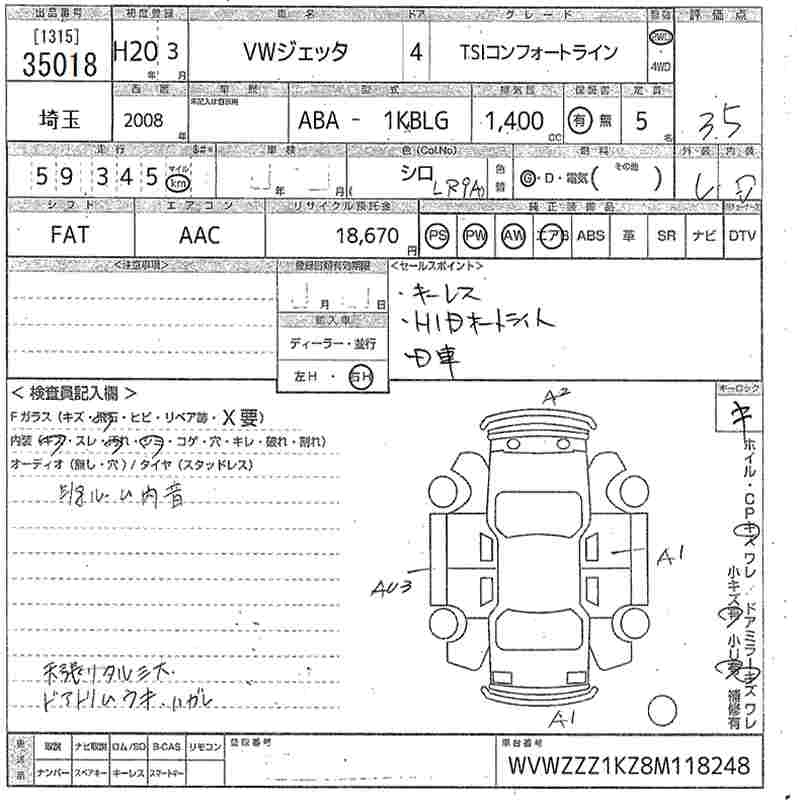 出品番号 初度登録 車名 ドア グレード 駆動 評価点
[1315]
35018 H20年 3月 VWジェッタ 4 TSIコンフォートライン 2WD・4WD
西暦 車歴 型式 排気量 保証書 定員
埼玉 2008年 未記入は自家用 ABA - 1KBLG 1,400cc 有 無 5名 3.5
走行 $#* 車検 色(Col.No) 燃料 外装 内装
59345 マイル km 年 月 シロ LR9A 色替 G・D・電気( その他 )
シフト エアコン リサイクル預託金 純正装備品
FAT AAC 18,670円 PS PW AW エアB ABS 革 SR ナビ DTV
<注意事項> 登録書類有効期限 <セールスポイント>
月 日
・キーレス
輸入車
・HIDオートライト
ディーラー・並行
・D車
左H・右H
<検査員記入欄> キーロック
Fガラス(キズ・飛石・ヒビ・リペア跡・X要) A2 キ
内装(キズ・スレ・汚れ・シミ・コゲ・穴・キレ・破れ・割れ)
オーディオ(無し・穴)/タイヤ(スタッドレス)
ホイル・CPキズ ワレ ドアミラーキズ ワレ
小キズ有 小U有 補修有
A1
AU3
A1
ドアトリムウキ.ハガレ
取説 ナビ取説 ロム/SD B-CAS リモコン 登録番号 車台番号
ナンバー スペアキー キーレス スマートキー WVWZZZ1KZ8M118248